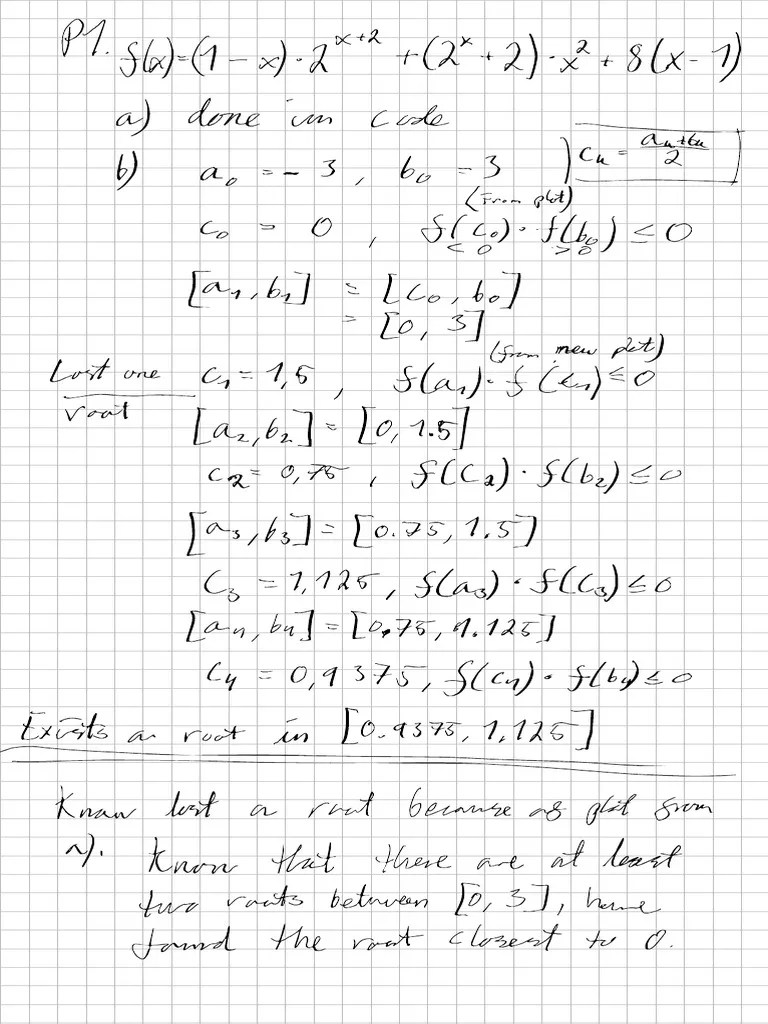 P1. f(x)=(1-x)·2^{x+2} +(2^x+2)·x^2+8(x-1)
a) done in code
b) a_0 = -3, b_0 - 3 ) c_n = \frac{a_n+b_n}{2}
(From plot)
c_0 = 0, f(c_0)·f(b_0) ≤ 0
<0 >0
[a_1,b_1] = [c_0,b_0]
= [0, 3]
(from new plot)
Lost one c_1 = 1,5, f(a_1)·f(c_1) ≤ 0
root
[a_2,b_2] = [0,1.5]
c_2 = 0,75, f(c_2)·f(b_2) ≤ 0
[a_3,b_3] = [0.75,1.5]
c_3 = 1,125, f(a_3)·f(c_3) ≤ 0
[a_4,b_4] = [0,75,1.125]
c_4 = 0,9375, f(c_4)·f(b_4) ≤ 0
Exists a root in [0.9375,1.125]
Know lost a root because of plot from
a). Know that there are at least
two roots between [0,3], have
found the root closest to 0.